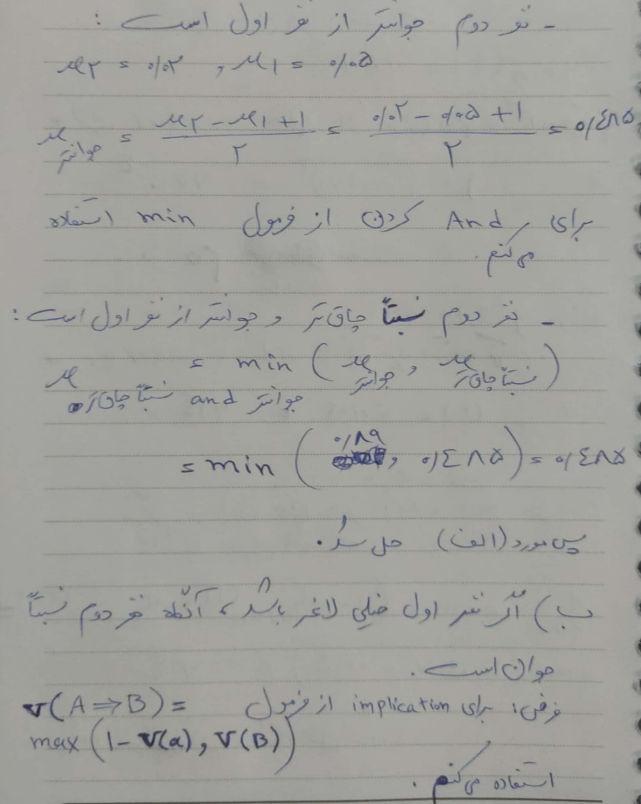 - نفر دوم جوانتر از نفر اول است :
μ۲ = ۰/۰۲ , μ۱ = ۰/۰۵
μ جوانتر = (μ۲ - μ۱ + ۱) / ۲ = (۰/۰۲ - ۰/۰۵ + ۱) / ۲ = ۰/۴۸۵
برای And کردن از فرمول min استفاده
می‌کنم.
- نفر دوم نسبتاً چاق‌تر و جوانتر از نفر اول است :
μ جوانتر and نسبتاً چاق‌تر = min (μ جوانتر , μ نسبتاً چاق‌تر)
= min (۰/۸۹ , ۰/۴۸۵) = ۰/۴۸۵
پس مورد (الف) حل شد.
ب) اگر نفر اول خیلی لاغر باشد، آنگاه نفر دوم نسبتاً
جوان است.
فرض: برای implication از فرمول V(A ⇒ B) =
max (1 - V(a), V(B))
استفاده می‌کنم.